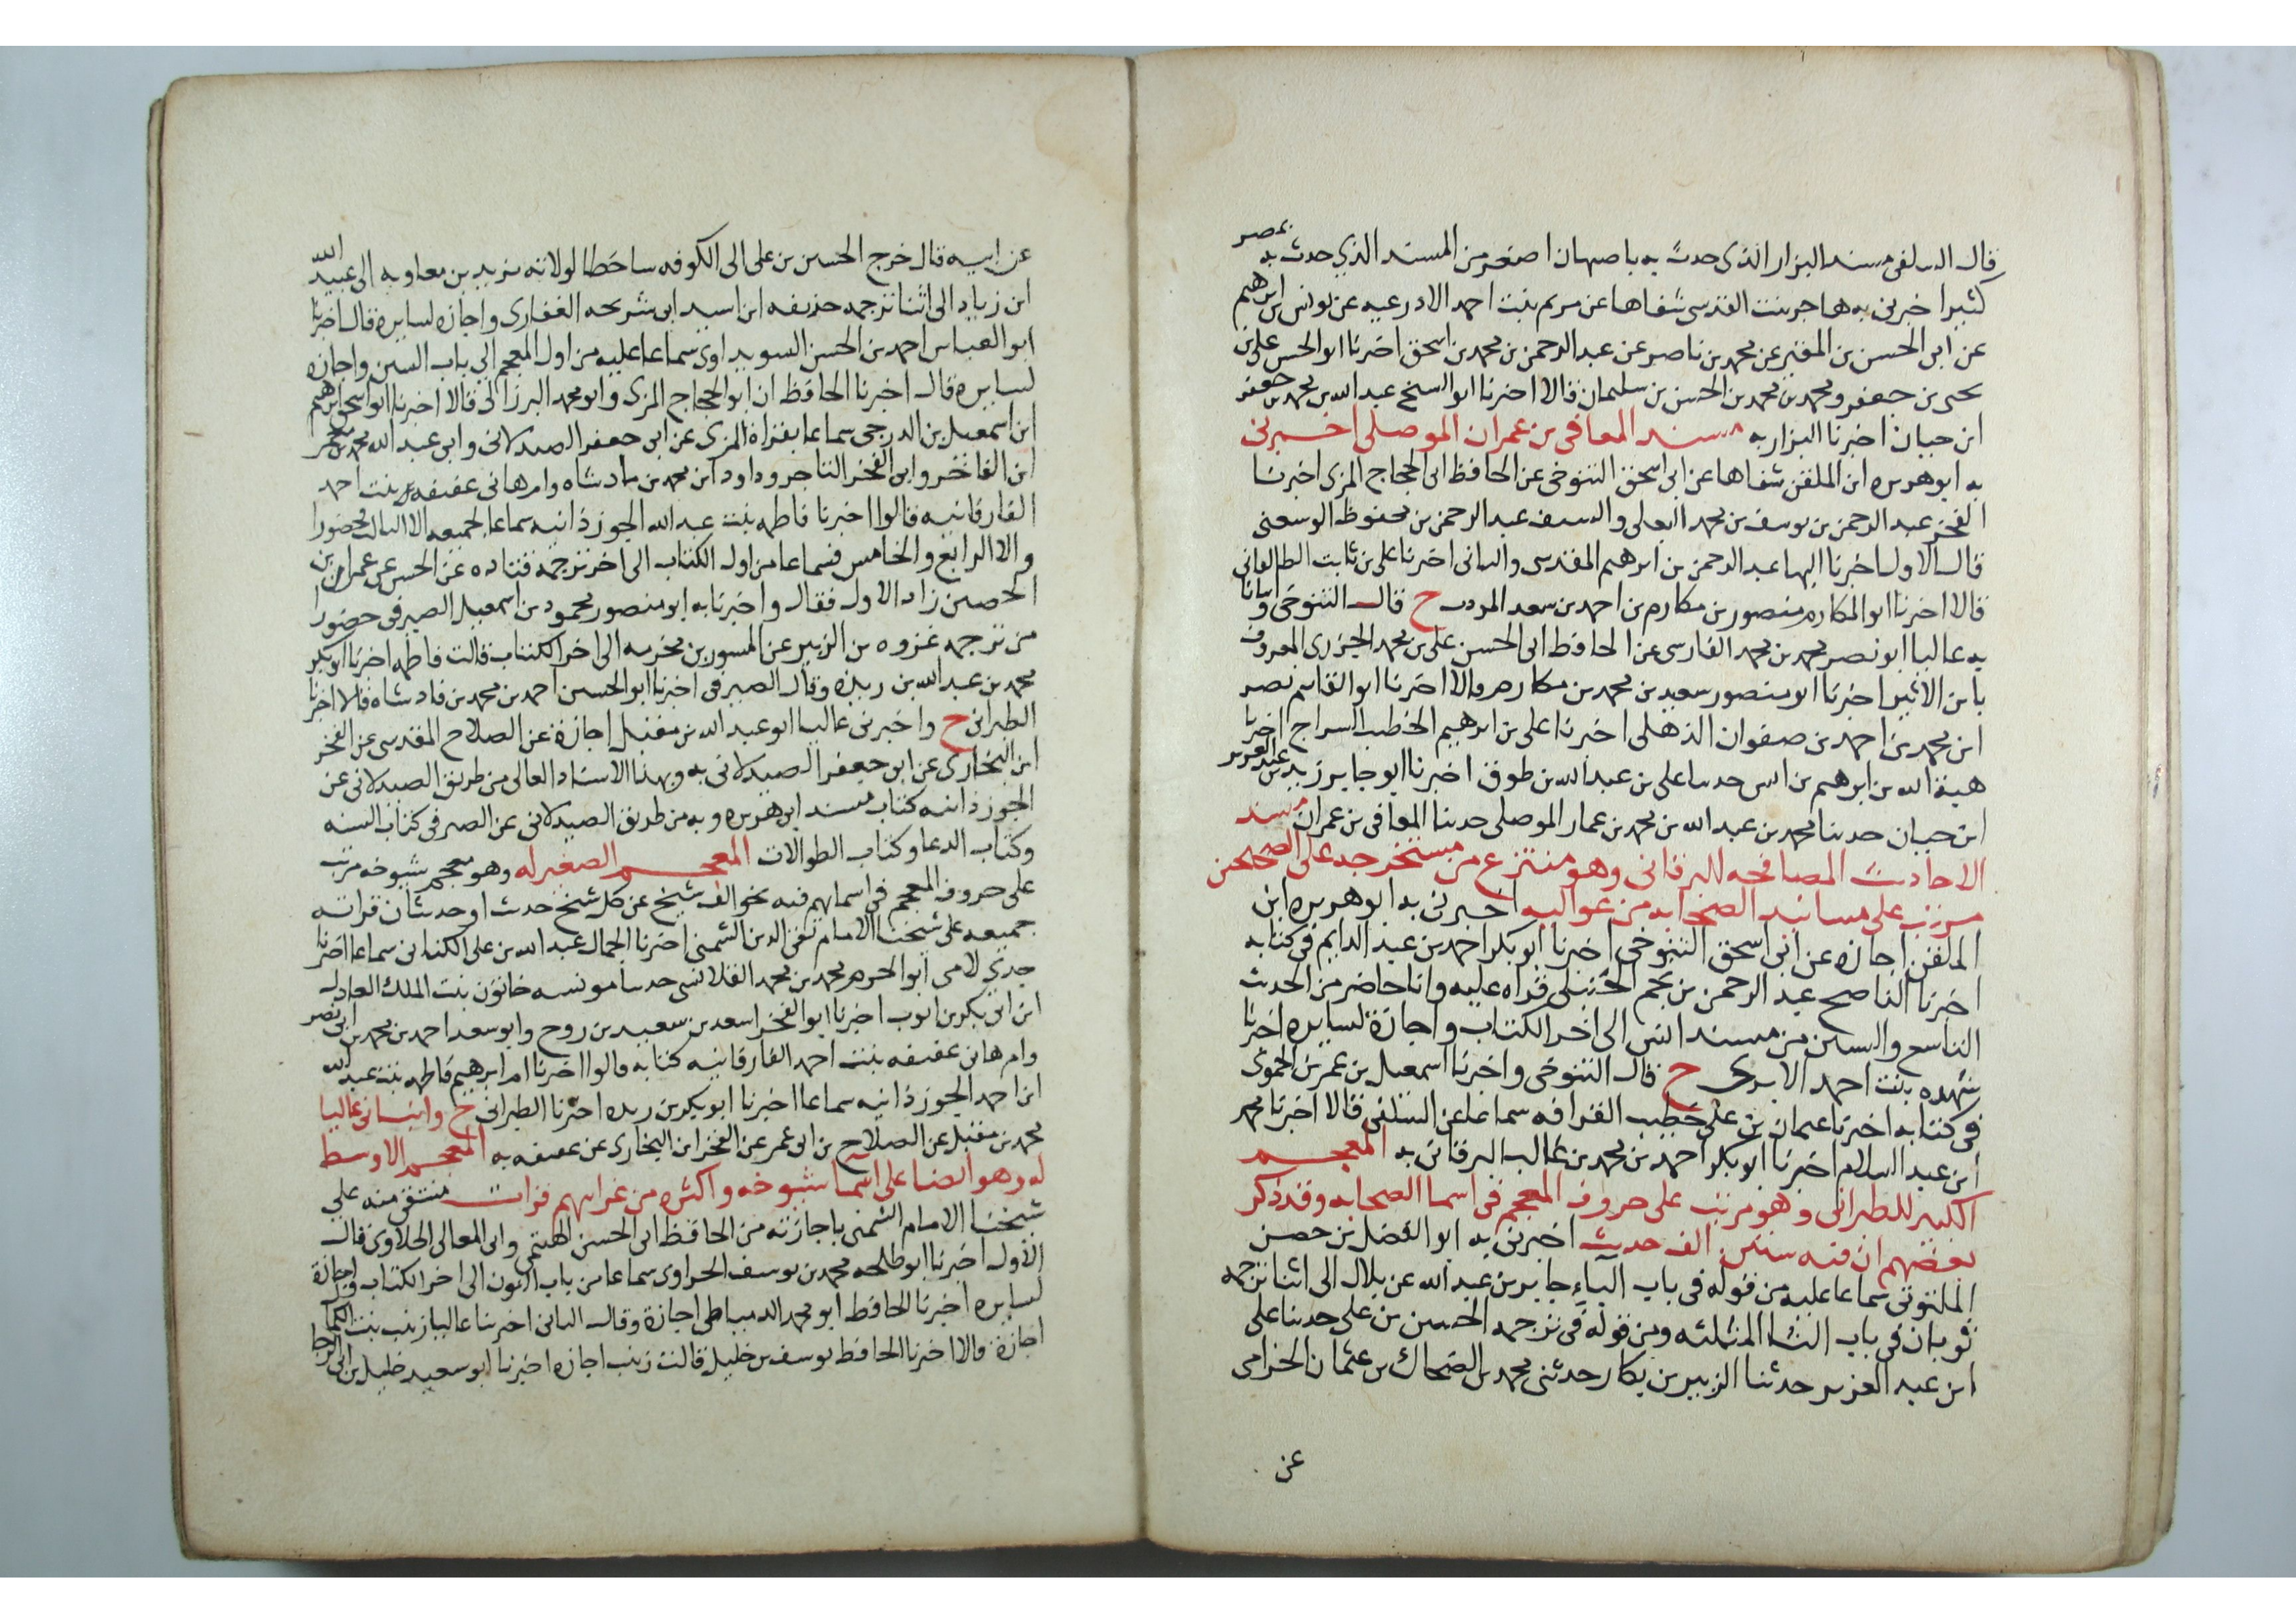 قال السلفي مسند البزار الذي حدث به باصبهان اصغر من المسند الذي حدث به بمصر
كثيرا اخبرني به هاجر بنت القدسي شفاها عن مريم بنت احمد الاذرعيه عن يونس بن ابرهيم
عن ابي الحسن بن المقير عن محمد بن ناصر عن عبد الرحمن بن محمد بن اسحق اخبرنا ابو الحسن علي بن
يحيى بن جعفر ومحمد بن محمد بن الحسن بن سليمان قالا اخبرنا ابو الشيخ عبد الله بن محمد بن جعفر
ابن حبان اخبرنا البزار به مسند المعافى بن عمران الموصلي اخبرني
به ابو هريره ابن الملقن شفاها عن ابي اسحق التنوخي عن الحافظ ابي الحجاج المزي اخبرنا
الفخر عبد الرحمن بن يوسف بن محمد البعلي والسيف عبد الرحمن بن محفوظ الرسعني
قال الاول اخبرنا البها عبد الرحمن بن ابرهيم المقدسي والثاني اخبرنا علي بن ثابت الطالقاني
قالا اخبرنا ابو المكارم منصور بن مكارم بن احمد بن سعد المودب ح قال التنوخي وانبانا
به عاليا ابو نصر محمد بن محمد الفارسي عن الحافظ ابي الحسن علي بن محمد الجزري المعروف
بابن الاثير اخبرنا ابو منصور سعيد بن محمد بن مكارم قالا اخبرنا ابو القاسم نصر
ابن محمد بن احمد بن صفوان الذهلي اخبرنا علي بن ابرهيم الخطب السراج اخبرنا
هبة الله بن ابرهيم بن انس حدسا علي بن عبد الله بن طوق اخبرنا ابو جابر زيد بن عبد العزيز
ابن حبان حدثنا محمد بن عبد الله بن محمد بن عمار الموصلي حدثنا المعافى بن عمران مسند
الاحاديث المصافحه للبرقاني وهو منتزع من مستخرجه على الصحيحين
مرتب على مسانيد الصحابه من عواليه اخبرني به ابو هريره ابن
الملقن اجازه عن ابي اسحق التنوخي اخبرنا ابو بكر احمد بن عبد الدايم في كتابه
اخبرنا الناصح عبد الرحمن بن نجم الحنبلي قراه عليه وانا حاضر من الحديث
التاسع والستين من مسند انس الى اخر الكتاب واجازة لسايره اخبرنا
شهده بنت احمد الابري ح قال التنوخي واخبرنا اسمعيل بن عمر بن الحموي
في كتابه اخبرنا عثمان بن علي خطيب القرافه سماعا عن السلفي قالا اخبرنا محمد
ابن عبد السلام اخبرنا ابو بكر احمد بن محمد بن غالب البرقاني به المعجم
الكبير للطبراني وهو مرتب على حروف المعجم في اسما الصحابه وقد ذكر
بعضهم ان فيه ستين الف حديث اخبرني به ابو الفضل بن حصن
الملتوتي سماعا عليه من قوله في باب الباء جابر بن عبد الله عن بلال الى اثنا ترجمه
ثوبان في باب الثا المثلثه ومن قوله في ترجمه الحسين بن علي حدثنا علي
ابن عبد العزيز حدثنا الزبير بن بكار حدثني محمد بن الضحاك بن عثمان الحزامي
عن
عن ابيه قال خرج الحسين بن علي الى الكوفه ساخطا لولاته يزيد بن معاويه الى عبيد الله
ابن زياد الى اثنا ترجمه حذيفه ابن اسيد ابي شريحه الغفاري واجازه لسايره قال اخبرنا
ابو العباس احمد بن الحسن السويداوي سماعا عليه من اول المعجم الى باب السين واجازه
لسايره قال اخبرنا الحافظ ان ابو الحجاج المزي وابو محمد البرزالي قالا اخبرنا ابو اسحق ابرهيم
ابن اسمعيل بن الدرجي سماعا بقراة المزي عن ابي جعفر الصيدلاني وابي عبد الله محمد بن معمر
ابن الفاخر وابي الفخر التاجر وداود ابن محمد بن ماد شاه وام هاني عفيفه بنت احمد
الفارقانيه قالوا اخبرنا فاطمه بنت عبد الله الجوزذانيه سماعا لجميعه الا الثالث فحضورا
والا الرابع والخامس فسماعا من اول الكتاب الى اخر ترجمه قتاده عن الحسن عن عمران بن
الحصين زاد الاول فقال واخبرنا به ابو منصور محمود بن اسمعيل الصيرفي حضورا
من ترجمه عروه بن الزبير عن المسور بن مخرمه الى اخر الكتاب قالت فاطمه اخبرنا ابو بكر
محمد بن عبد الله بن ريذه وقال الصيرفي اخبرنا ابو الحسين احمد بن محمد بن فادشاه قالا اخبرنا
الطبراني ح واخبرني عاليا ابو عبد الله بن مقبل اجازة عن الصلاح المقدسي عن الفخر
ابن البخاري عن ابي جعفر الصيدلاني به وبهذا الاسناد العالي من طريق الصيدلاني عن
الجوزذانيه كتاب مسند ابي هريره وبه من طريق الصيدلاني عن الصيرفي كتاب السنه
وكتاب الدعا وكتاب الطوالات المعجم الصغير له وهو معجم شيوخه مرتب
على حروف المعجم في اسمايهم فيه نحو الف شيخ عن كل شيخ حدث او حديثان قراته
جميعه على شيخنا الامام تقي الدين الشمني اخبرنا الجمال عبد الله بن علي الكناني سماعا اخبرنا
جدي لامي ابو الحرم محمد بن محمد القلانسي حدسا مونسه خاتون بنت الملك العادل
ابن ابي بكر بن ايوب اخبرنا ابو الفخر اسعد بن سعيد بن روح وابو سعد احمد بن محمد بن ابي نصر
وام هاني عفيفه بنت احمد الفارقانيه كتابه قالوا اخبرنا ام ابرهيم فاطمه بنت عبد الله
ابن احمد الجوزذانيه سماعا اخبرنا ابو بكر بن ريذه اخبرنا الطبراني ح وانباني عاليا
محمد بن مقبل عن الصلاح بن ابي عمر عن الفخر ابن البخاري عن عفيفه به المعجم الاوسط
له وهو ايضا على اسما شيوخه واكثره من غرايبهم قرات منتقى منه على
شيخنا الامام الشمني باجازته من الحافظ ابي الحسن الهيثمي وابي المعالي الحلاوي قال
الاول اخبرنا ابو طلحه محمد بن يوسف الحراوي سماعا من باب النون الى اخر الكتاب واجازة
لسايره اخبرنا الحافظ ابو محمد الدمياطي اجازة وقال الثاني اخبرتنا عاليا زينب بنت الكمال
اجازة قالا اخبرنا الحافظ يوسف بن خليل قالت زينب اجازه اخبرنا ابو سعيد خليل بن ابي الرجا